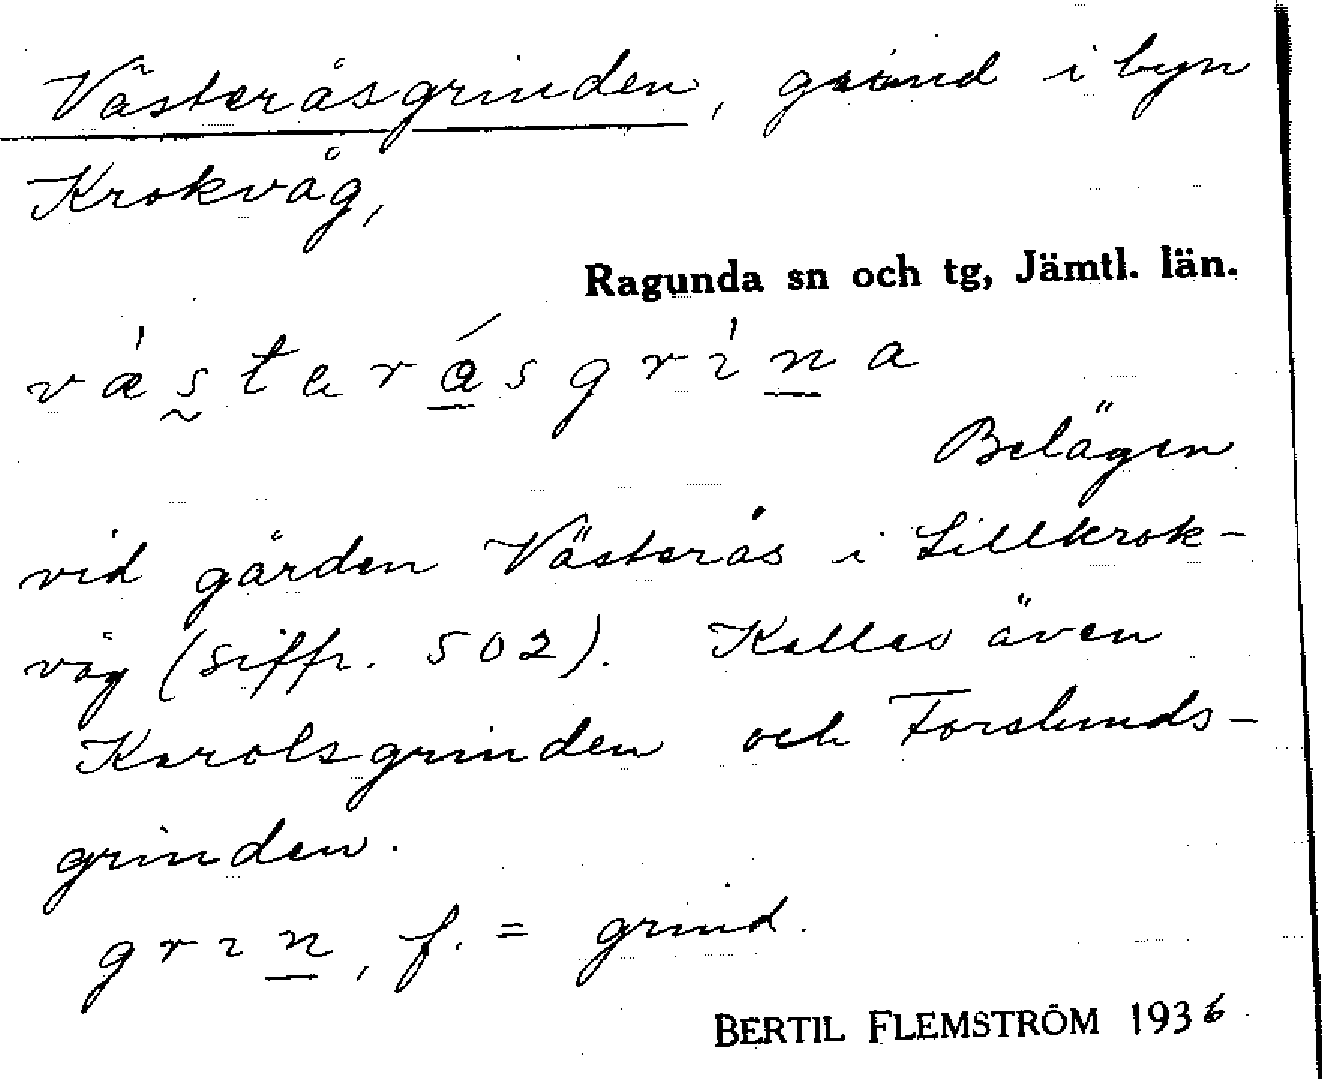 Västeråsgrinden, grind i byn
Krokvåg,
Ragunda sn och tg, Jämtl. län.
væ̀s̰terá̱sgrı̀n̲a
Belägen
vid gården Västerås i Lillkrok-
våg (siffr. 502). Kallas även
Karolsgrinden och Forslunds-
grinden.
grın̲, f. = grind.
BERTIL FLEMSTRÖM 1936